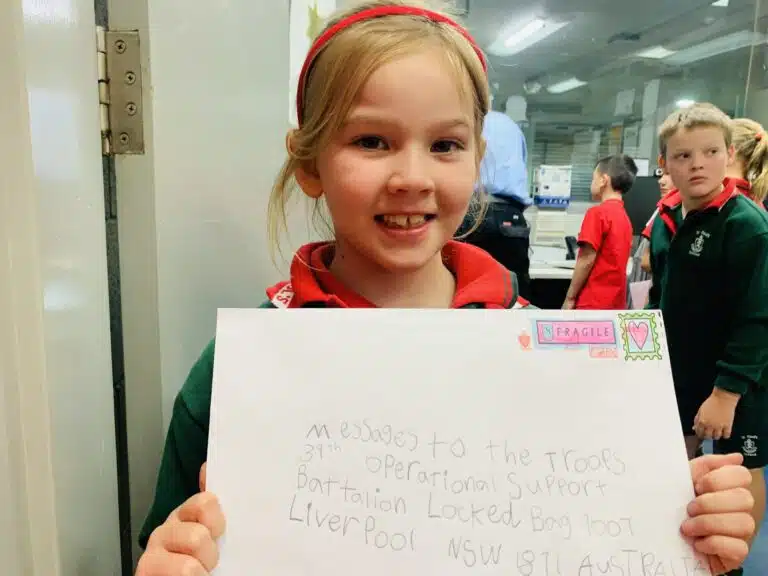 FRAGILE
Messages to the Troops
39th Operational Support
Battalion Locked Bag 1007
Liverpool NSW 1871 AUSTRALIA